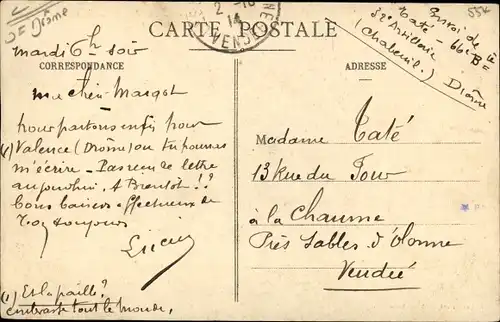 Drôme
2-10
14
VENDÉE
CARTE POSTALE
554
Envoi de
Taté - 66e Bie
32e Artillerie
(Chabeuil.) Drôme
mardi 6h soir
CORRESPONDANCE
ADRESSE
ma chère Margot
nous partons enfin pour
(1) Valence (Drôme) ou tu pourras
m'écrire - Pas reçu de lettre
aujourd'hui. A Bientôt !?
Bons baisers affectueux de
toujours
Lucien
(1) Et la paille ?
embrasse tout le monde,
Madame Taté
13 Rue du Four
à la Chaume
Près Sables d'Olonne
Vendée